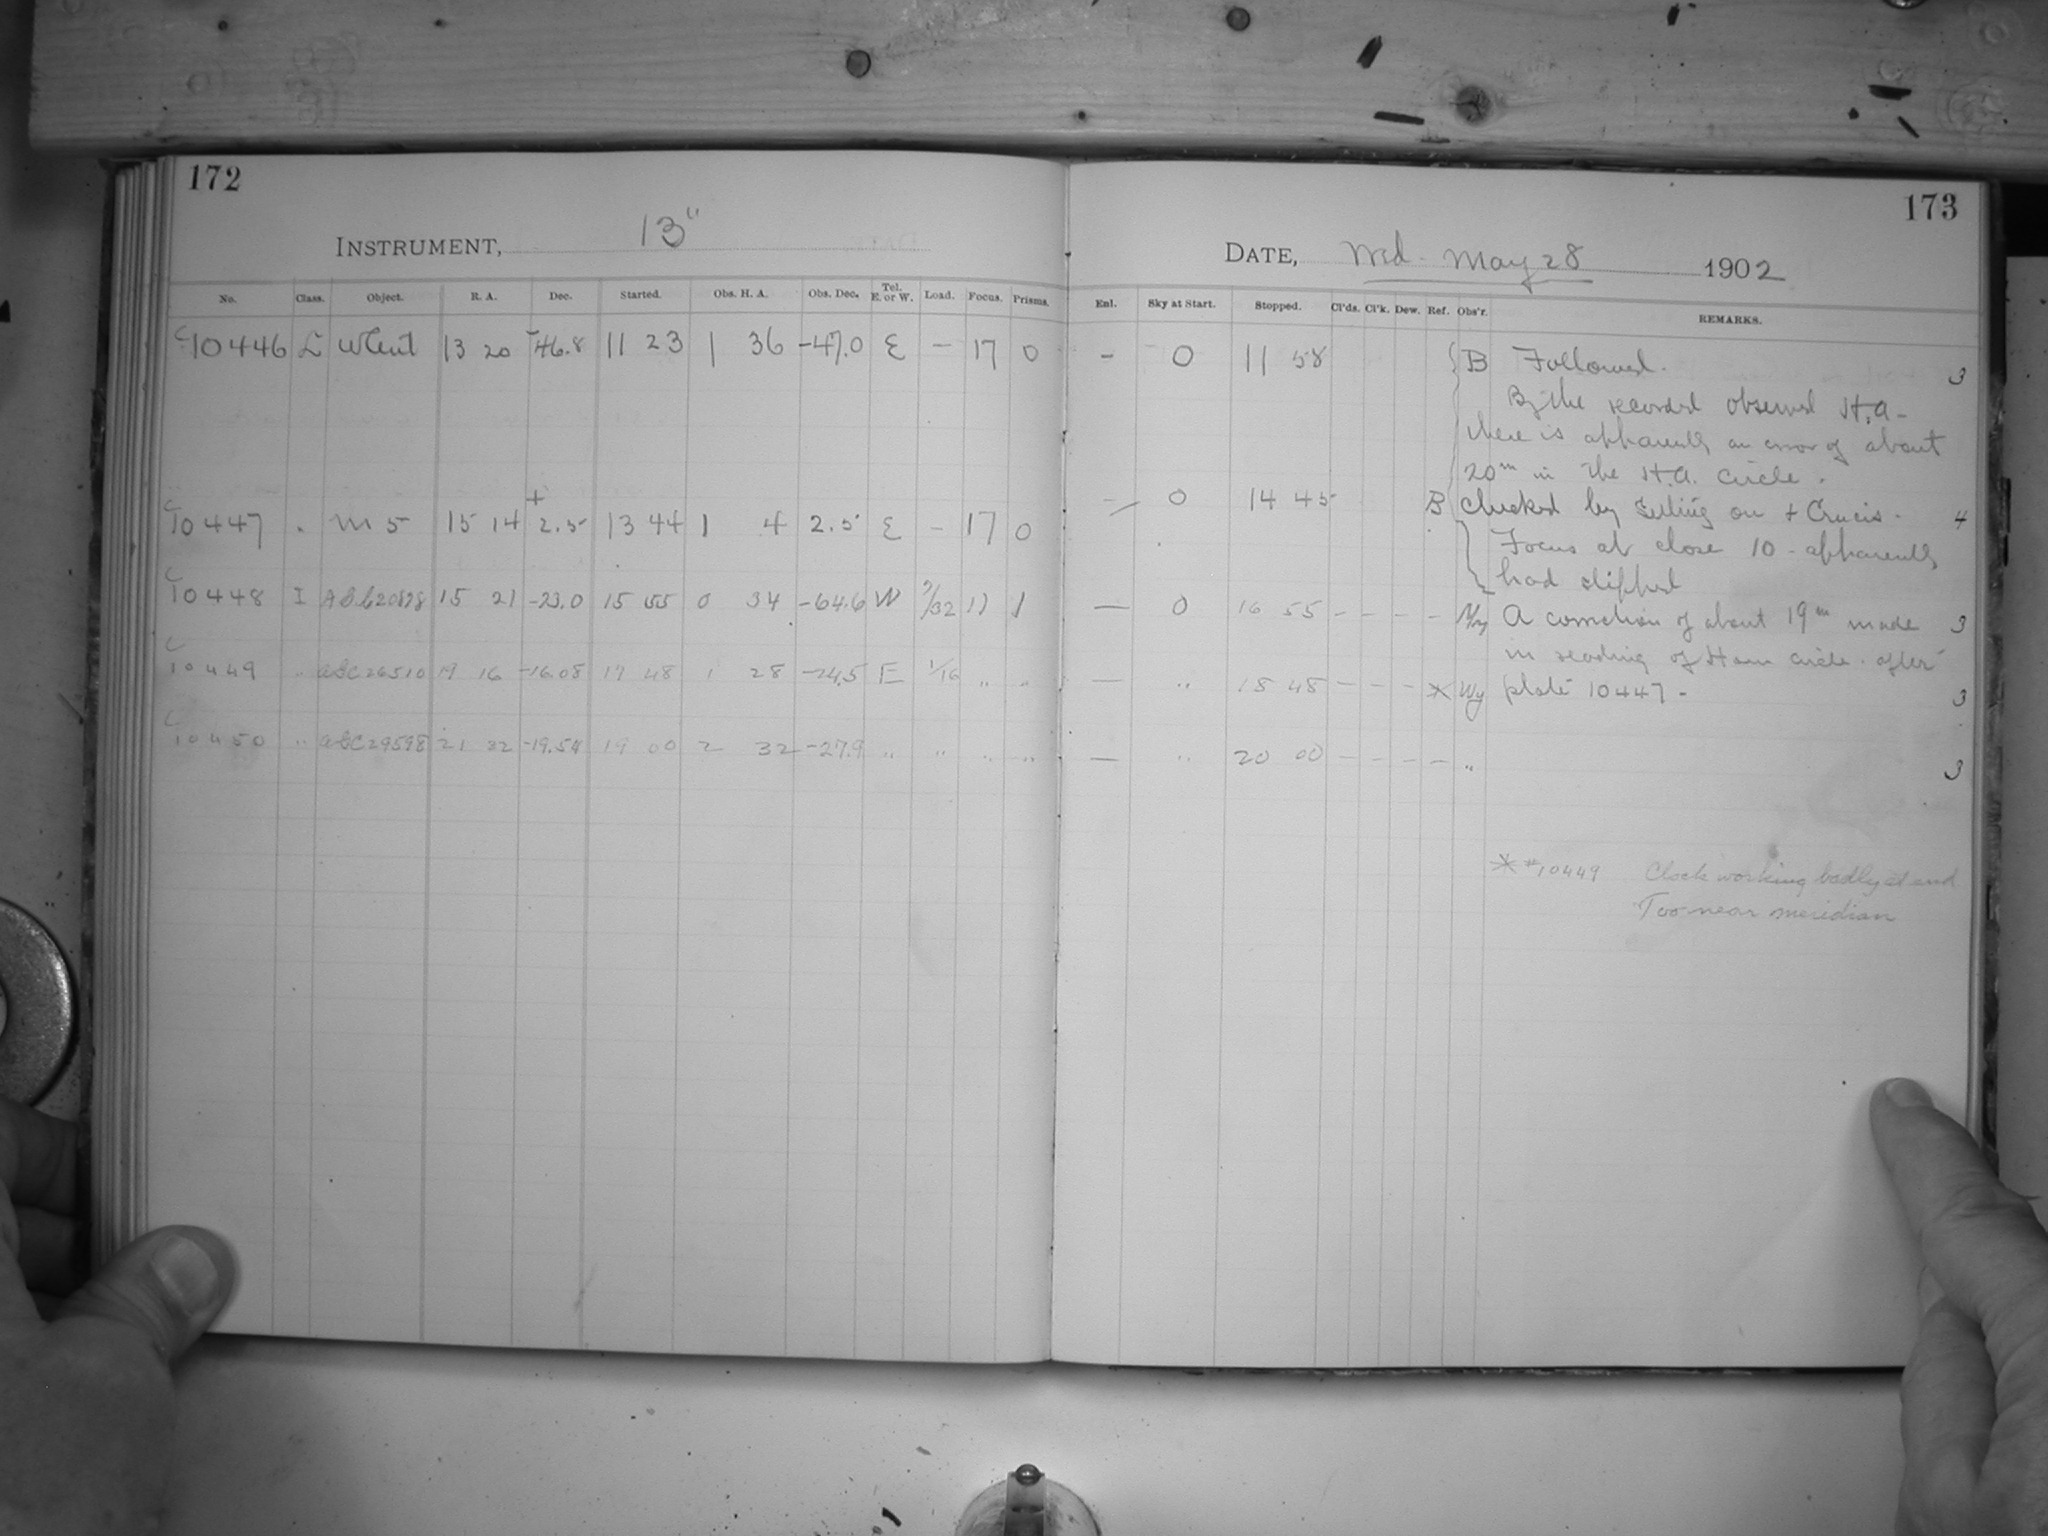 172
INSTRUMENT, 13"
No. Class. Object. R. A. Dec. Started. Obs. H. A. Obs. Dec. Tel. E. or W. Load. Focus. Prisms.
C10446 L ωCent 13 20 -46.8 11 23 1 36 -47.0 E - 17 0
C10447 . M 5 15 14 +2.5 13 44 1 4 2.5 E - 17 0
C10448 I 15 21 -23.0 15 55 0 34 -64.6 W /32 17 1
C10449 " AGC26510 19 16 -16.08 17 48 1 28 -24.5 E 1/16 " "
C10450 " AGC29598 21 32 -19.54 19 00 2 32 -27.9 " " " "
173
DATE, Wed. May 28 1902
Enl. Sky at Start. Stopped. Cl'ds. Cl'k. Dew. Ref. Obs'r. REMARKS.
- 0 11 58 B Followed. 3
By the recorded observed H.A.
there is apparently an error of about
20m in the H.A. Circle.
- 0 14 45 B Checked by setting on + Crucis. 4
Focus at close 10 - apparently
had slipped
— 0 16 55 - - - - Wy A correction of about 19m made 3
in reading of Hour circle. after
— " 18 48 - - - * Wy plate 10447 - 3
— " 20 00 - - - - " 3
* #10449 Clock working badly at end
Too near meridian